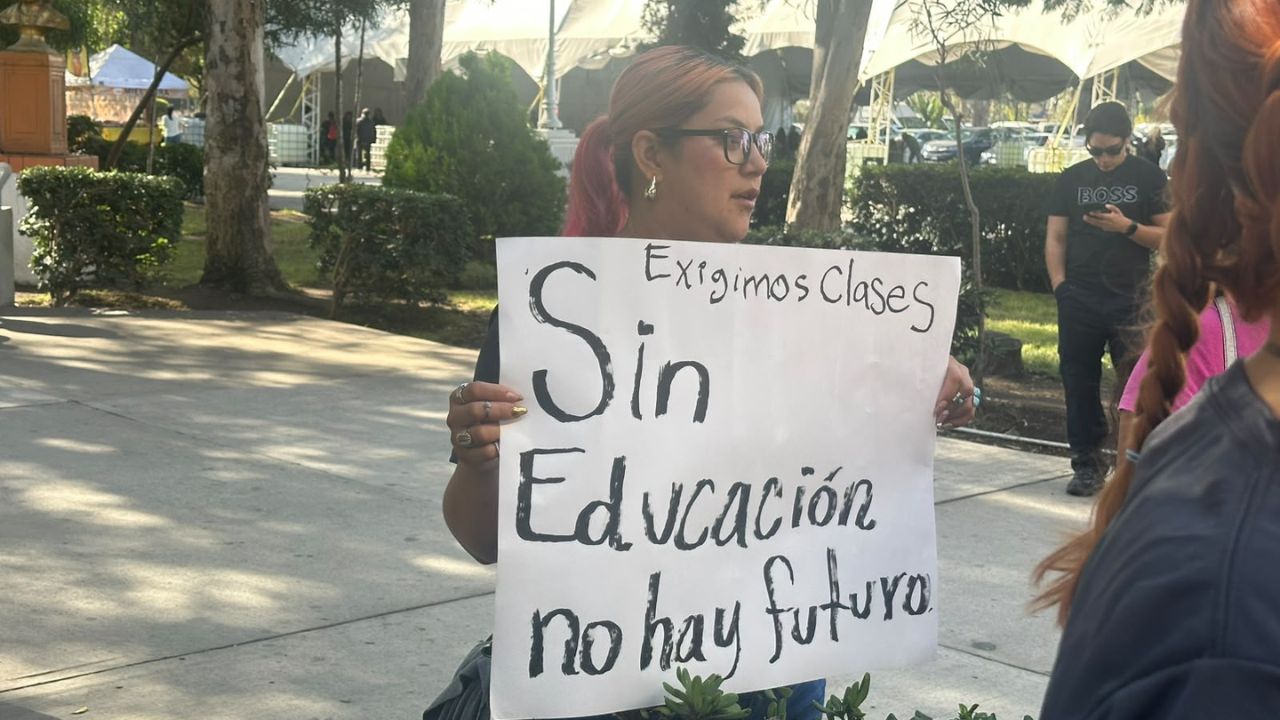 Exigimos Clases
Sin
Educación
no hay futuro.
BOSS